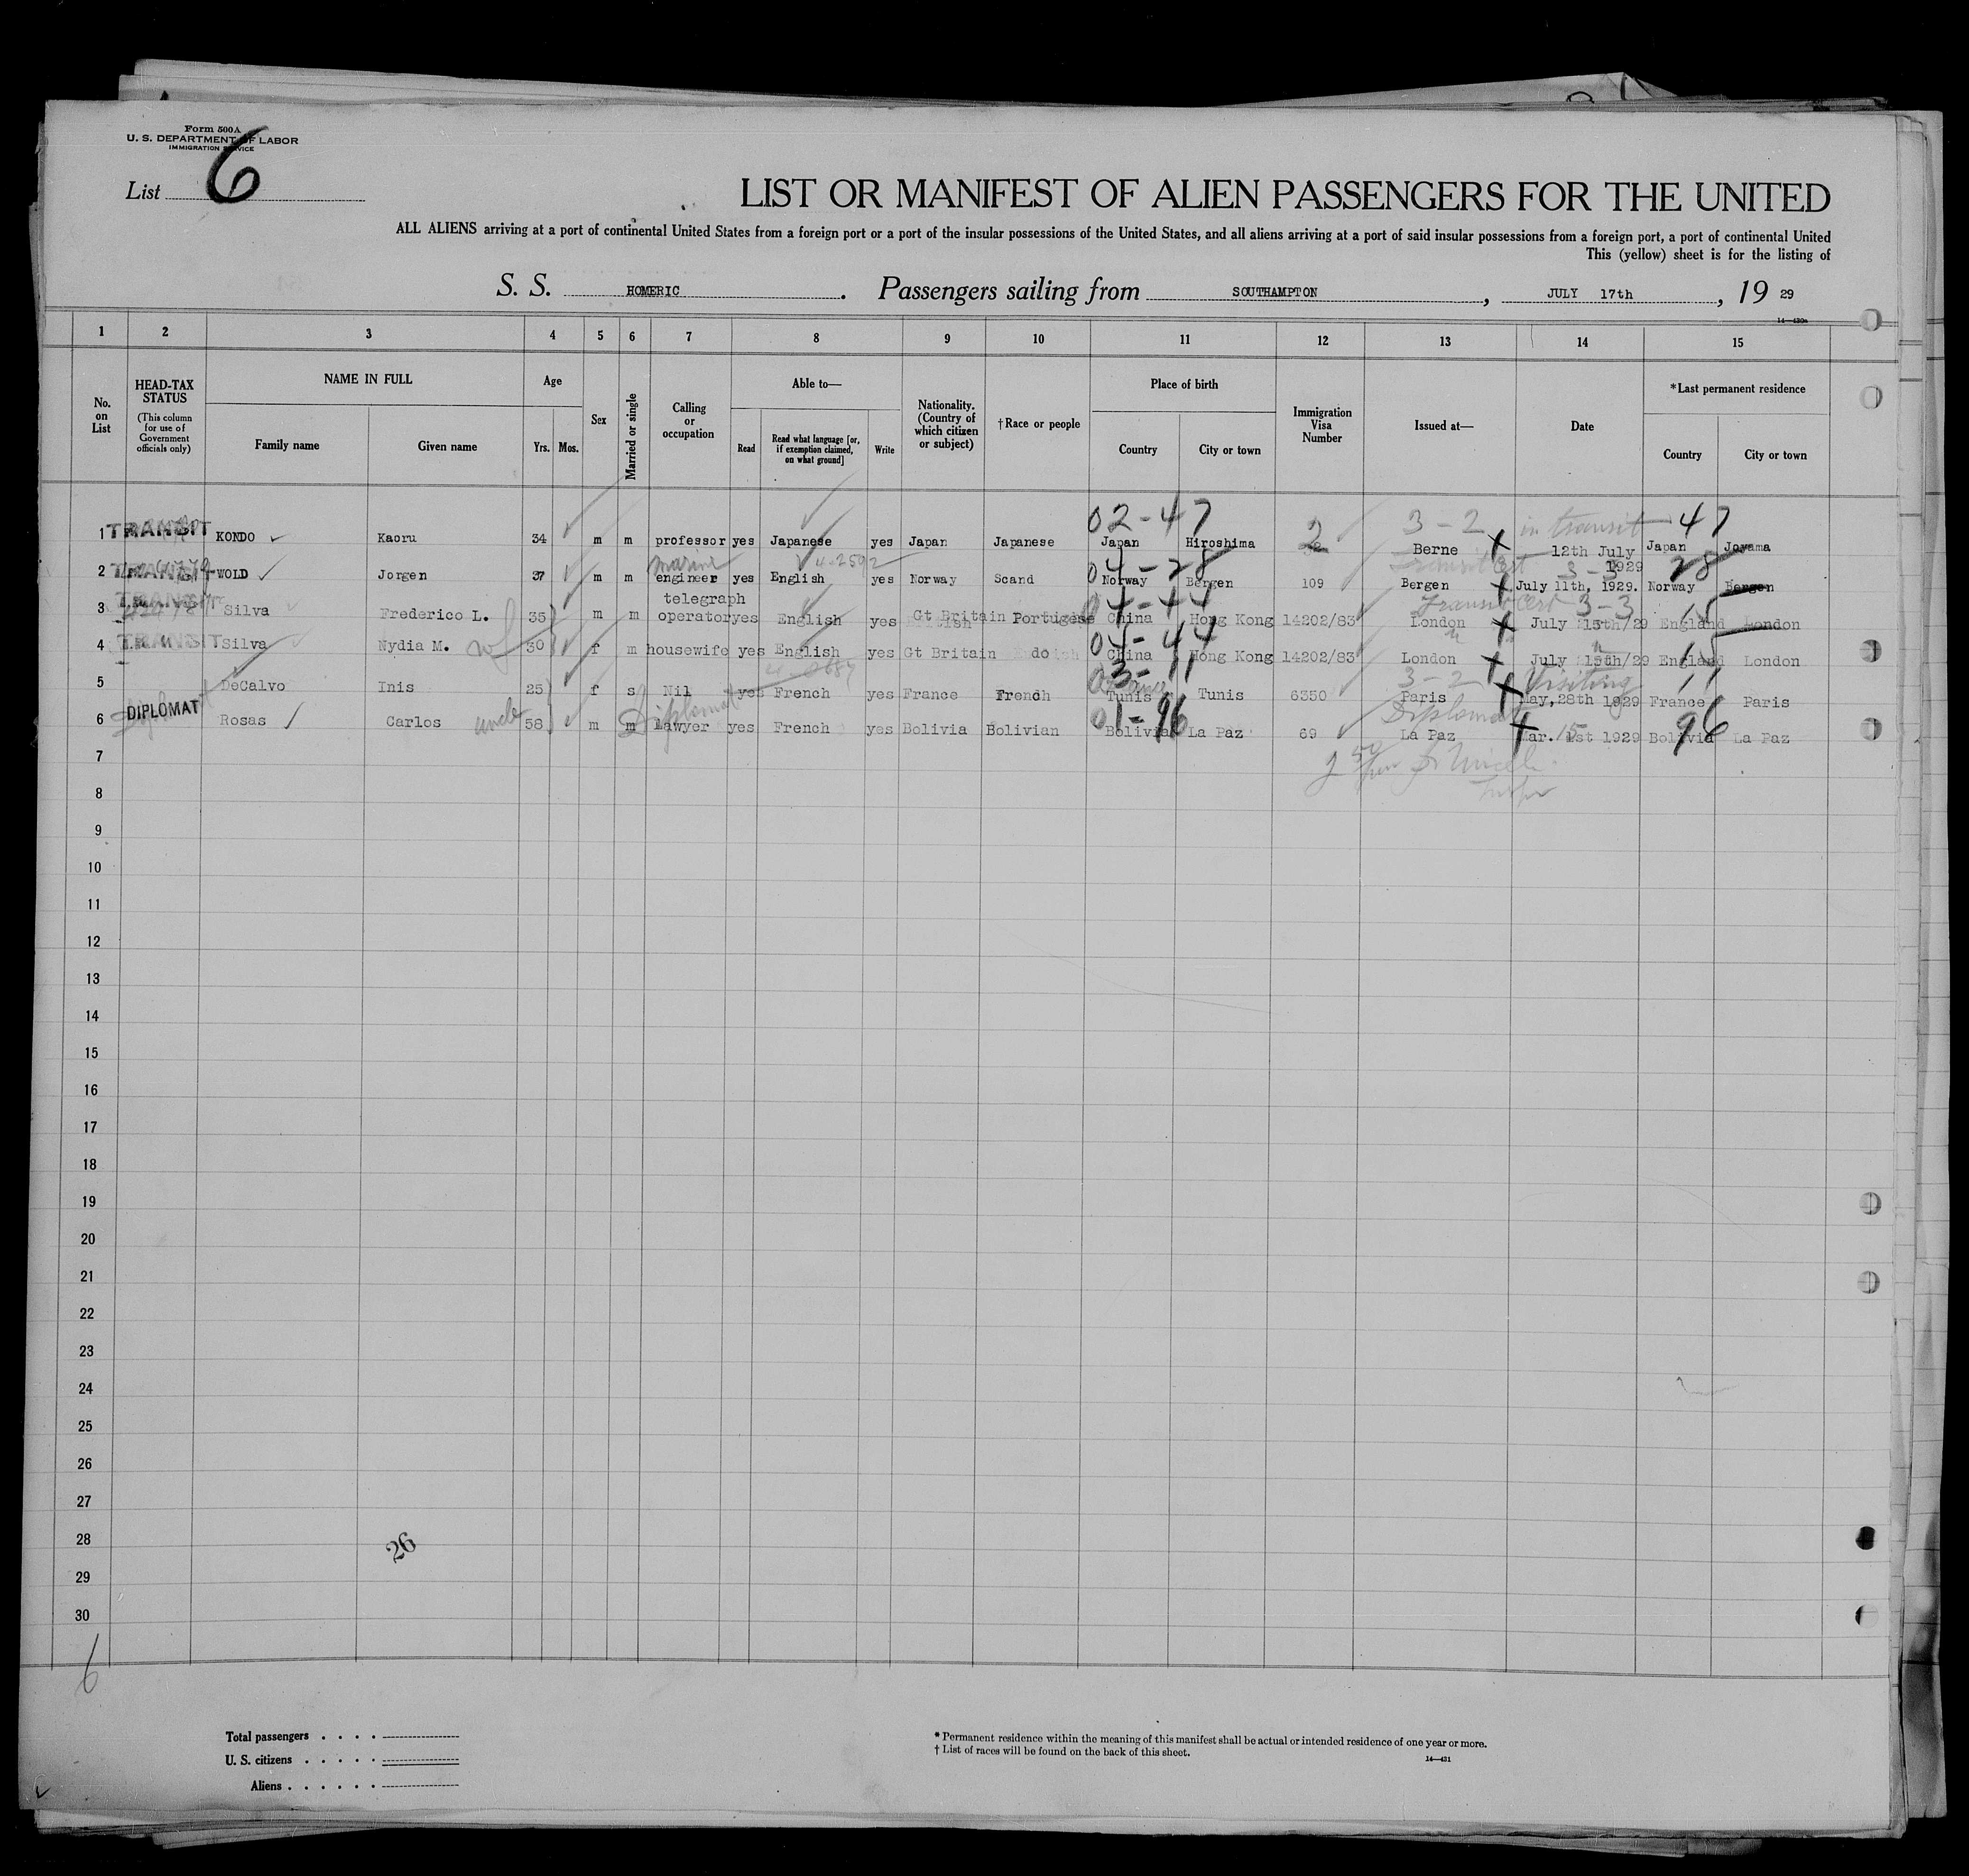 Form 500A
U. S. DEPARTMENT OF LABOR
IMMIGRATION SERVICE
List 6
LIST OR MANIFEST OF ALIEN PASSENGERS FOR THE UNITED
ALL ALIENS arriving at a port of continental United States from a foreign port or a port of the insular possessions of the United States, and all aliens arriving at a port of said insular possessions from a foreign port, a port of continental United
This (yellow) sheet is for the listing of
S. S. HOMERIC. Passengers sailing from SOUTHAMPTON, JULY 17th, 19 29
1 2 3 4 5 6 7 8 9 10 11 12 13 14 15
No. on List
HEAD-TAX STATUS
(This column for use of Government officials only)
NAME IN FULL
Family name Given name
Age
Yrs. Mos.
Sex
Married or single
Calling or occupation
Able to—
Read
Read what language [or, if exemption claimed, on what ground]
Write
Nationality. (Country of which citizen or subject)
†Race or people
Place of birth
Country City or town
Immigration Visa Number
Issued at—
Date
*Last permanent residence
Country City or town
02-47 3-2 in transit 47
1 TRANSIT KONDO Kaoru 34 m m professor yes Japanese yes Japan Japanese Japan Hiroshima 2 Berne 12th July 1929 Japan Joyama
marine 04-28 Transit Cert 3-3 28
2 TRANSIT WOLD Jorgen 37 m m engineer yes English yes Norway Scand Norway Bergen 109 Bergen July 11th, 1929. Norway Bergen
04-44 Transit Cert 3-3 15
3 TRANSIT Silva Frederico L. 35 m m telegraph operator yes English yes Gt Britain Portugese China Hong Kong 14202/83 London July 15th/29 England London
04-44 15
4 TRANSIT Silva Nydia M. wf 30 f m housewife yes English yes Gt Britain do China Hong Kong 14202/83 London July 15th/29 England London
03-11 3-2 Visiting 11
5 DeCalvo Inis 25 f s Nil yes French yes France French Tunis Tunis 6350 Paris May,28th 1929 France Paris
Diplomat 01-96 Diplomat 96
6 DIPLOMAT Rosas Carlos uncle 58 m m Lawyer yes French yes Bolivia Bolivian Bolivia La Paz 69 La Paz Mar. 1st 1929 Bolivia La Paz
7
8
9
10
11
12
13
14
15
16
17
18
19
20
21
22
23
24
25
26
27
28
29
30
26
6
Total passengers . . . .
U. S. citizens . . . . .
Aliens . . . . . .
* Permanent residence within the meaning of this manifest shall be actual or intended residence of one year or more.
† List of races will be found on the back of this sheet.
14—431